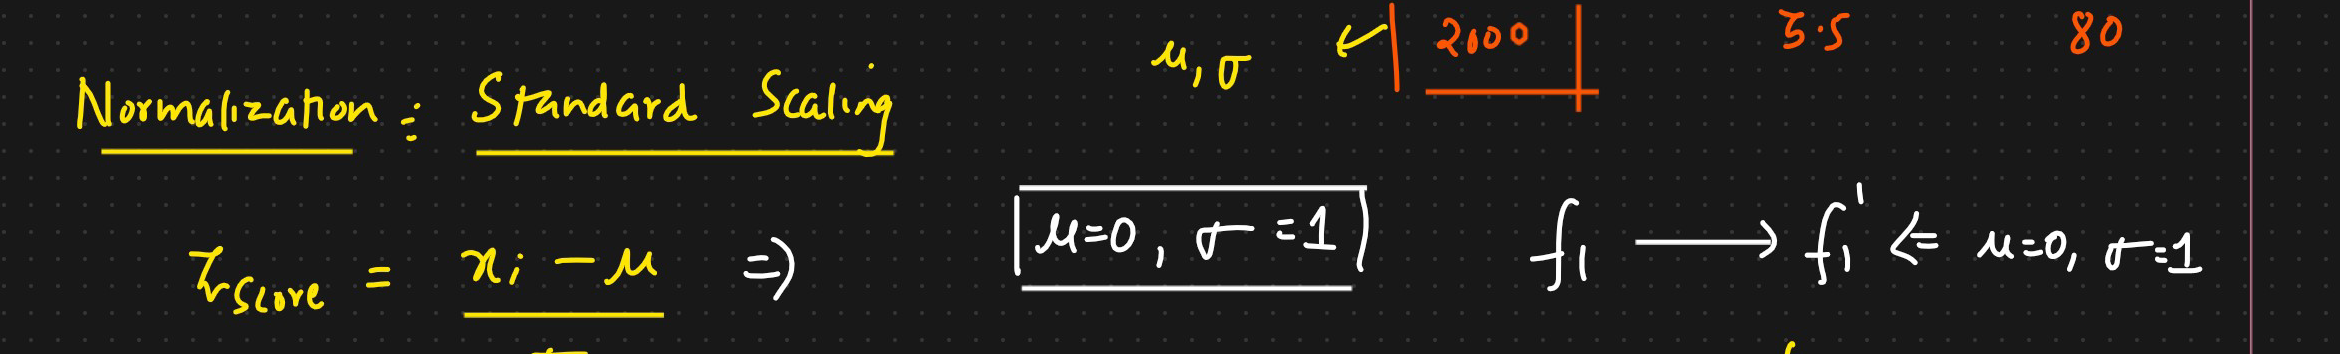 μ, σ 2000 5.5 80
Normalization : Standard Scaling
Zscore = xi - μ ⇒ μ=0, σ=1 f1 → f1' ⇐ μ=0, σ=1